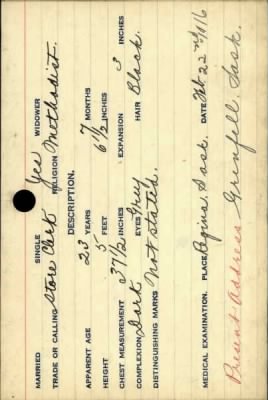 MARRIED SINGLE Yes WIDOWER
TRADE OR CALLING Store Clerk RELIGION Methodist.
DESCRIPTION.
APPARENT AGE 23 YEARS 7 MONTHS
HEIGHT 5 FEET 6 1/2 INCHES
CHEST MEASUREMENT 37 1/2 INCHES EXPANSION 3 INCHES
COMPLEXION Dark EYES Grey HAIR Black.
DISTINGUISHING MARKS Not stated.
MEDICAL EXAMINATION. PLACE Regina, Sask. DATE Feb 22nd 1916
Present Address Grenfell, Sask.